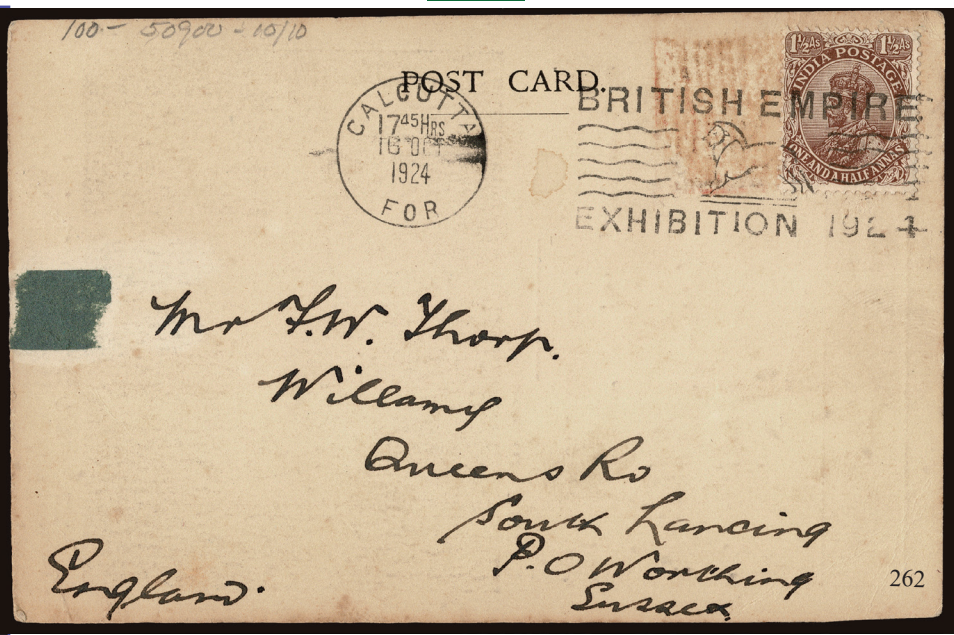 100- 50900 - 10/10
POST CARD.
CALCUTTA
17 45 HRS
16 OCT
1924
FOR
BRITISH EMPIRE
EXHIBITION 1924
1½ As 1½ As
INDIA POSTAGE
ONE AND A HALF ANNAS
Mr F.W. Thorp.
Queens Rd
South Lancing
P.O Worthing
Sussex.
England.
262